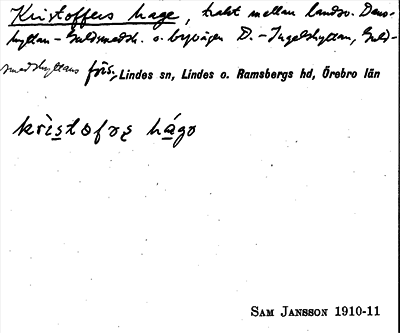 Kristoffers hage, trakt mellan landsv. Dans-
hyttan-Guldsmedsh. o. byvägen D.-Ingelshyttan, Guld-
smedshyttans förs, Lindes sn, Lindes o. Ramsbergs hd, Örebro län
krìstofəʂ hágə
SAM JANSSON 1910-11